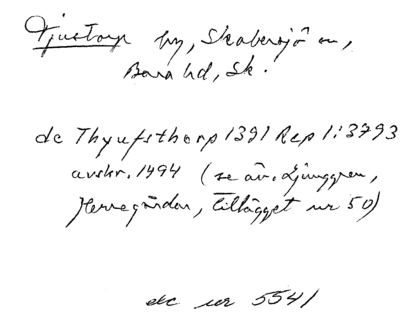 Tjustorp by, Skabersjö sn,
Bara hd, Sk.
de Thyufsthorp 1391 Rep 1:3793
avskr. 1494 (se äv. Ljunggren,
Herregårdar, tillägget nr 50)
dec nr 5541